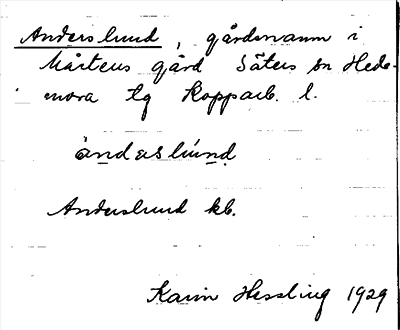 Anderslund, gårdsnamn i
Mårtens gård Säters sn Hede-
mora tg Kopparb. l.
ändaslúnd
Anderslund kb.
Karin Hessling 1929